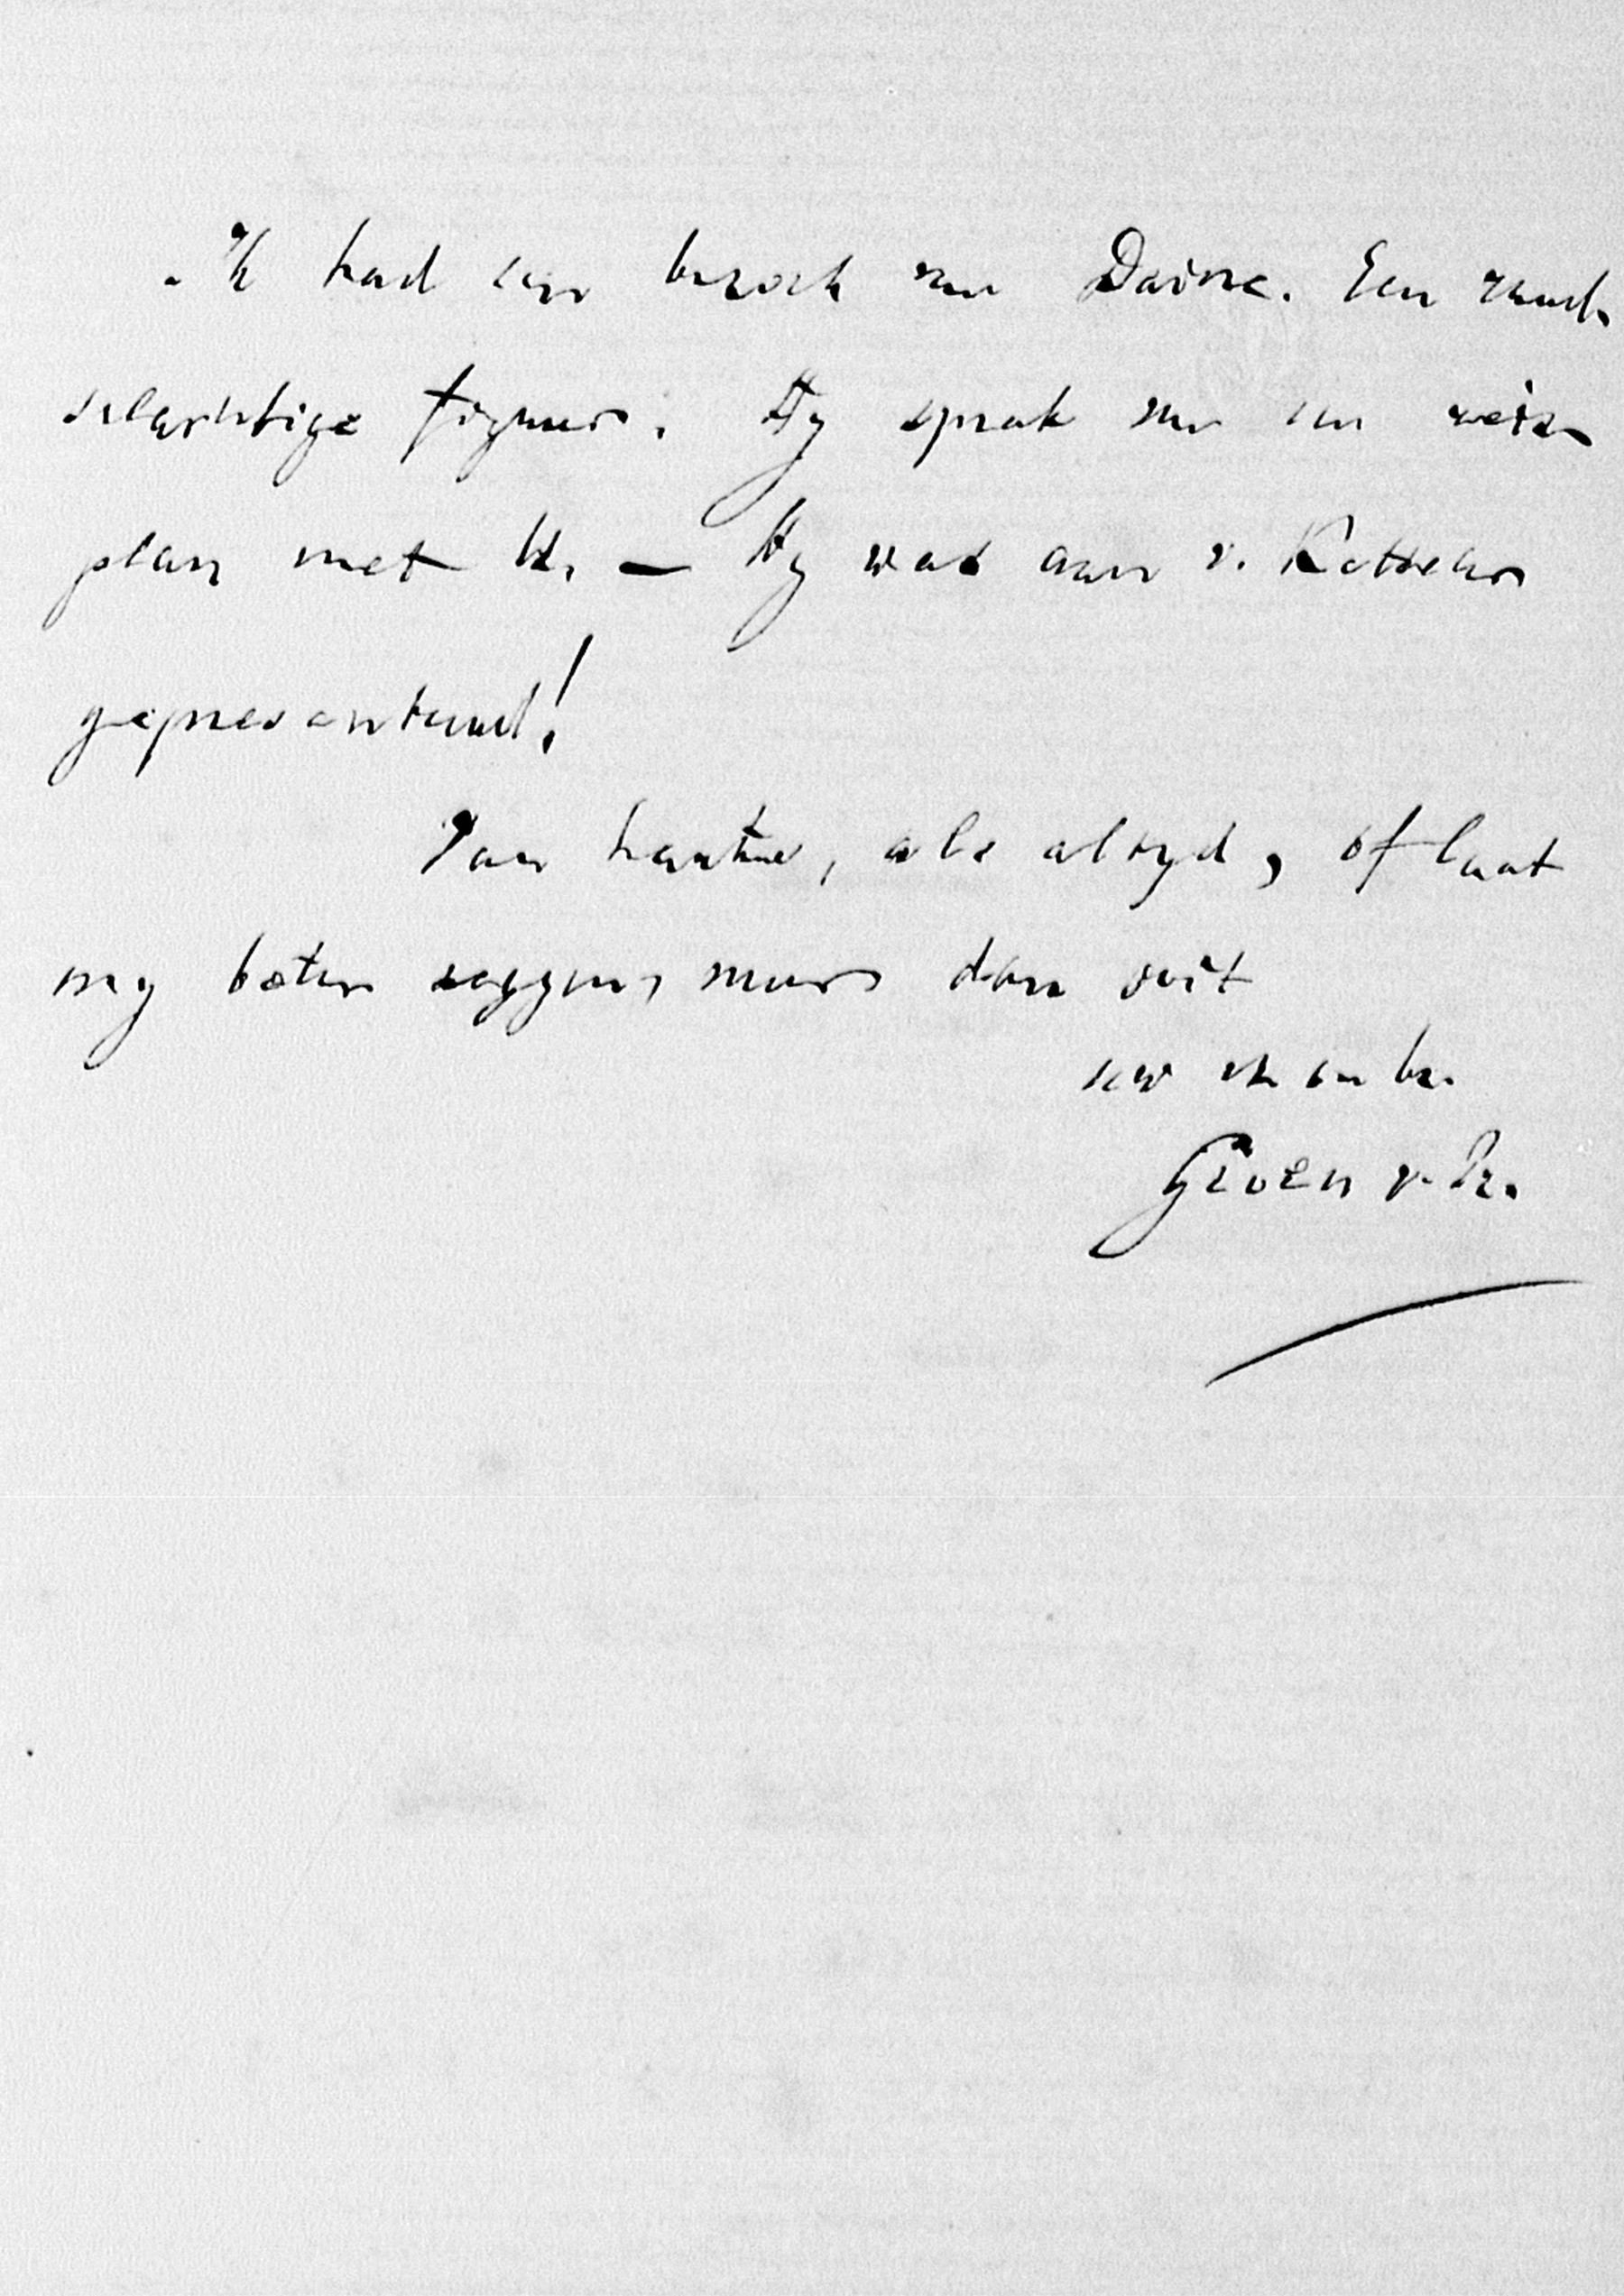 Ik had een bezoek van Daine. Een raad-
selachtige figuur. Hy sprak van een reis-
plan met U. — Hy was aan v. Ketteler
gepresenteerd!
Van harte, als altyd, of laat
my beter zeggen, meer dan ooit
uw vr. en br.
Groen v. Pr.